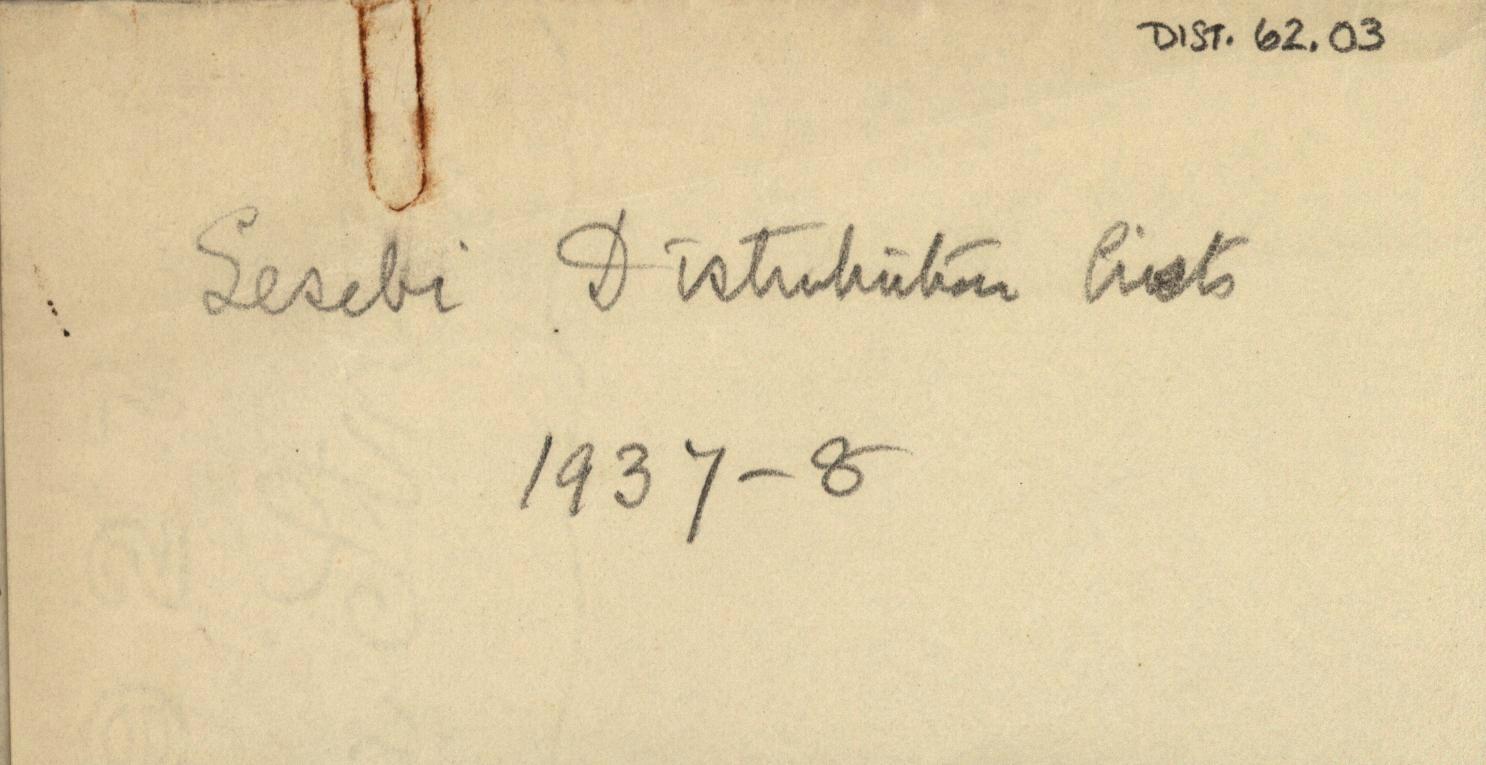 DIST. 62.03
Sesebi Distribution Lists
1937-8